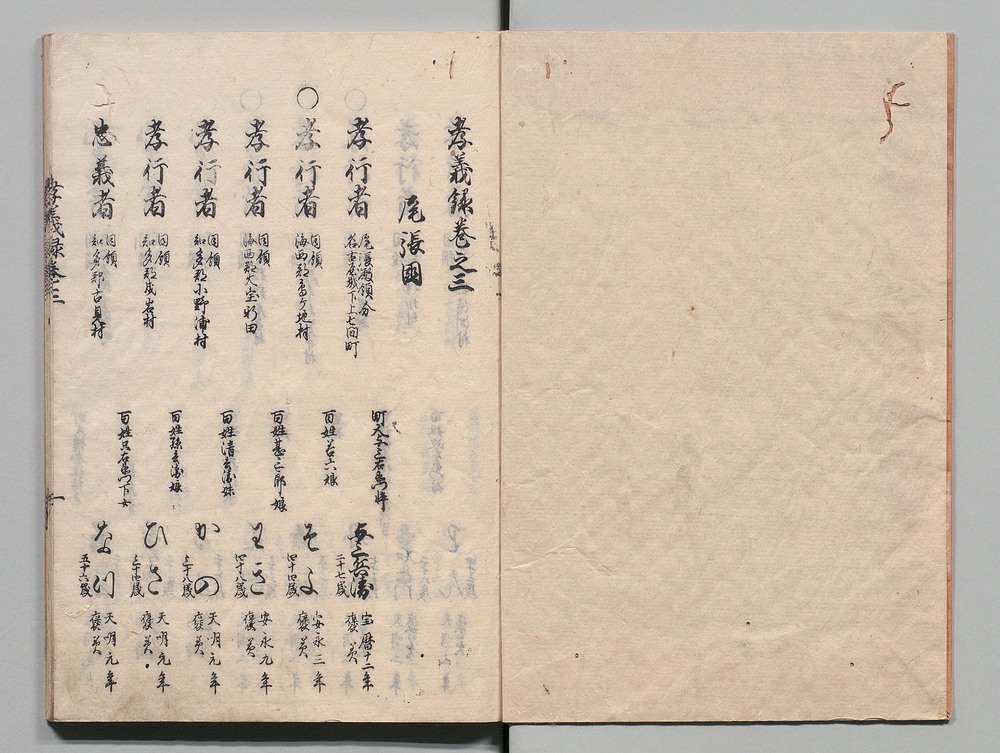 孝義録巻之三
尾張國
孝行者
尾張殿領分
名古屋城下上七間町
町人文之右衛門悴
二十七歳
宝暦十二年
褒美
○
孝行者
同領
海西郡鳥ケ地村
百姓若六娘
そよ
四十四歳
安永三年
褒美
孝行者
同領
海西郡大宝新田
百姓甚三郎娘
四十八歳
安永九年
褒美
孝行者
同領
知多郡小野浦村
百姓清兵衛妹
かの
三十八歳
天明元年
褒美
孝行者
同領
知多郡成岩村
百姓孫兵衛娘
ひさ
三十四歳
天明元年
褒美
忠義者
同領
知多郡古見村
百姓只右衛門下女
なつ
五十六歳
天明元年
褒美
孝義録巻三
一